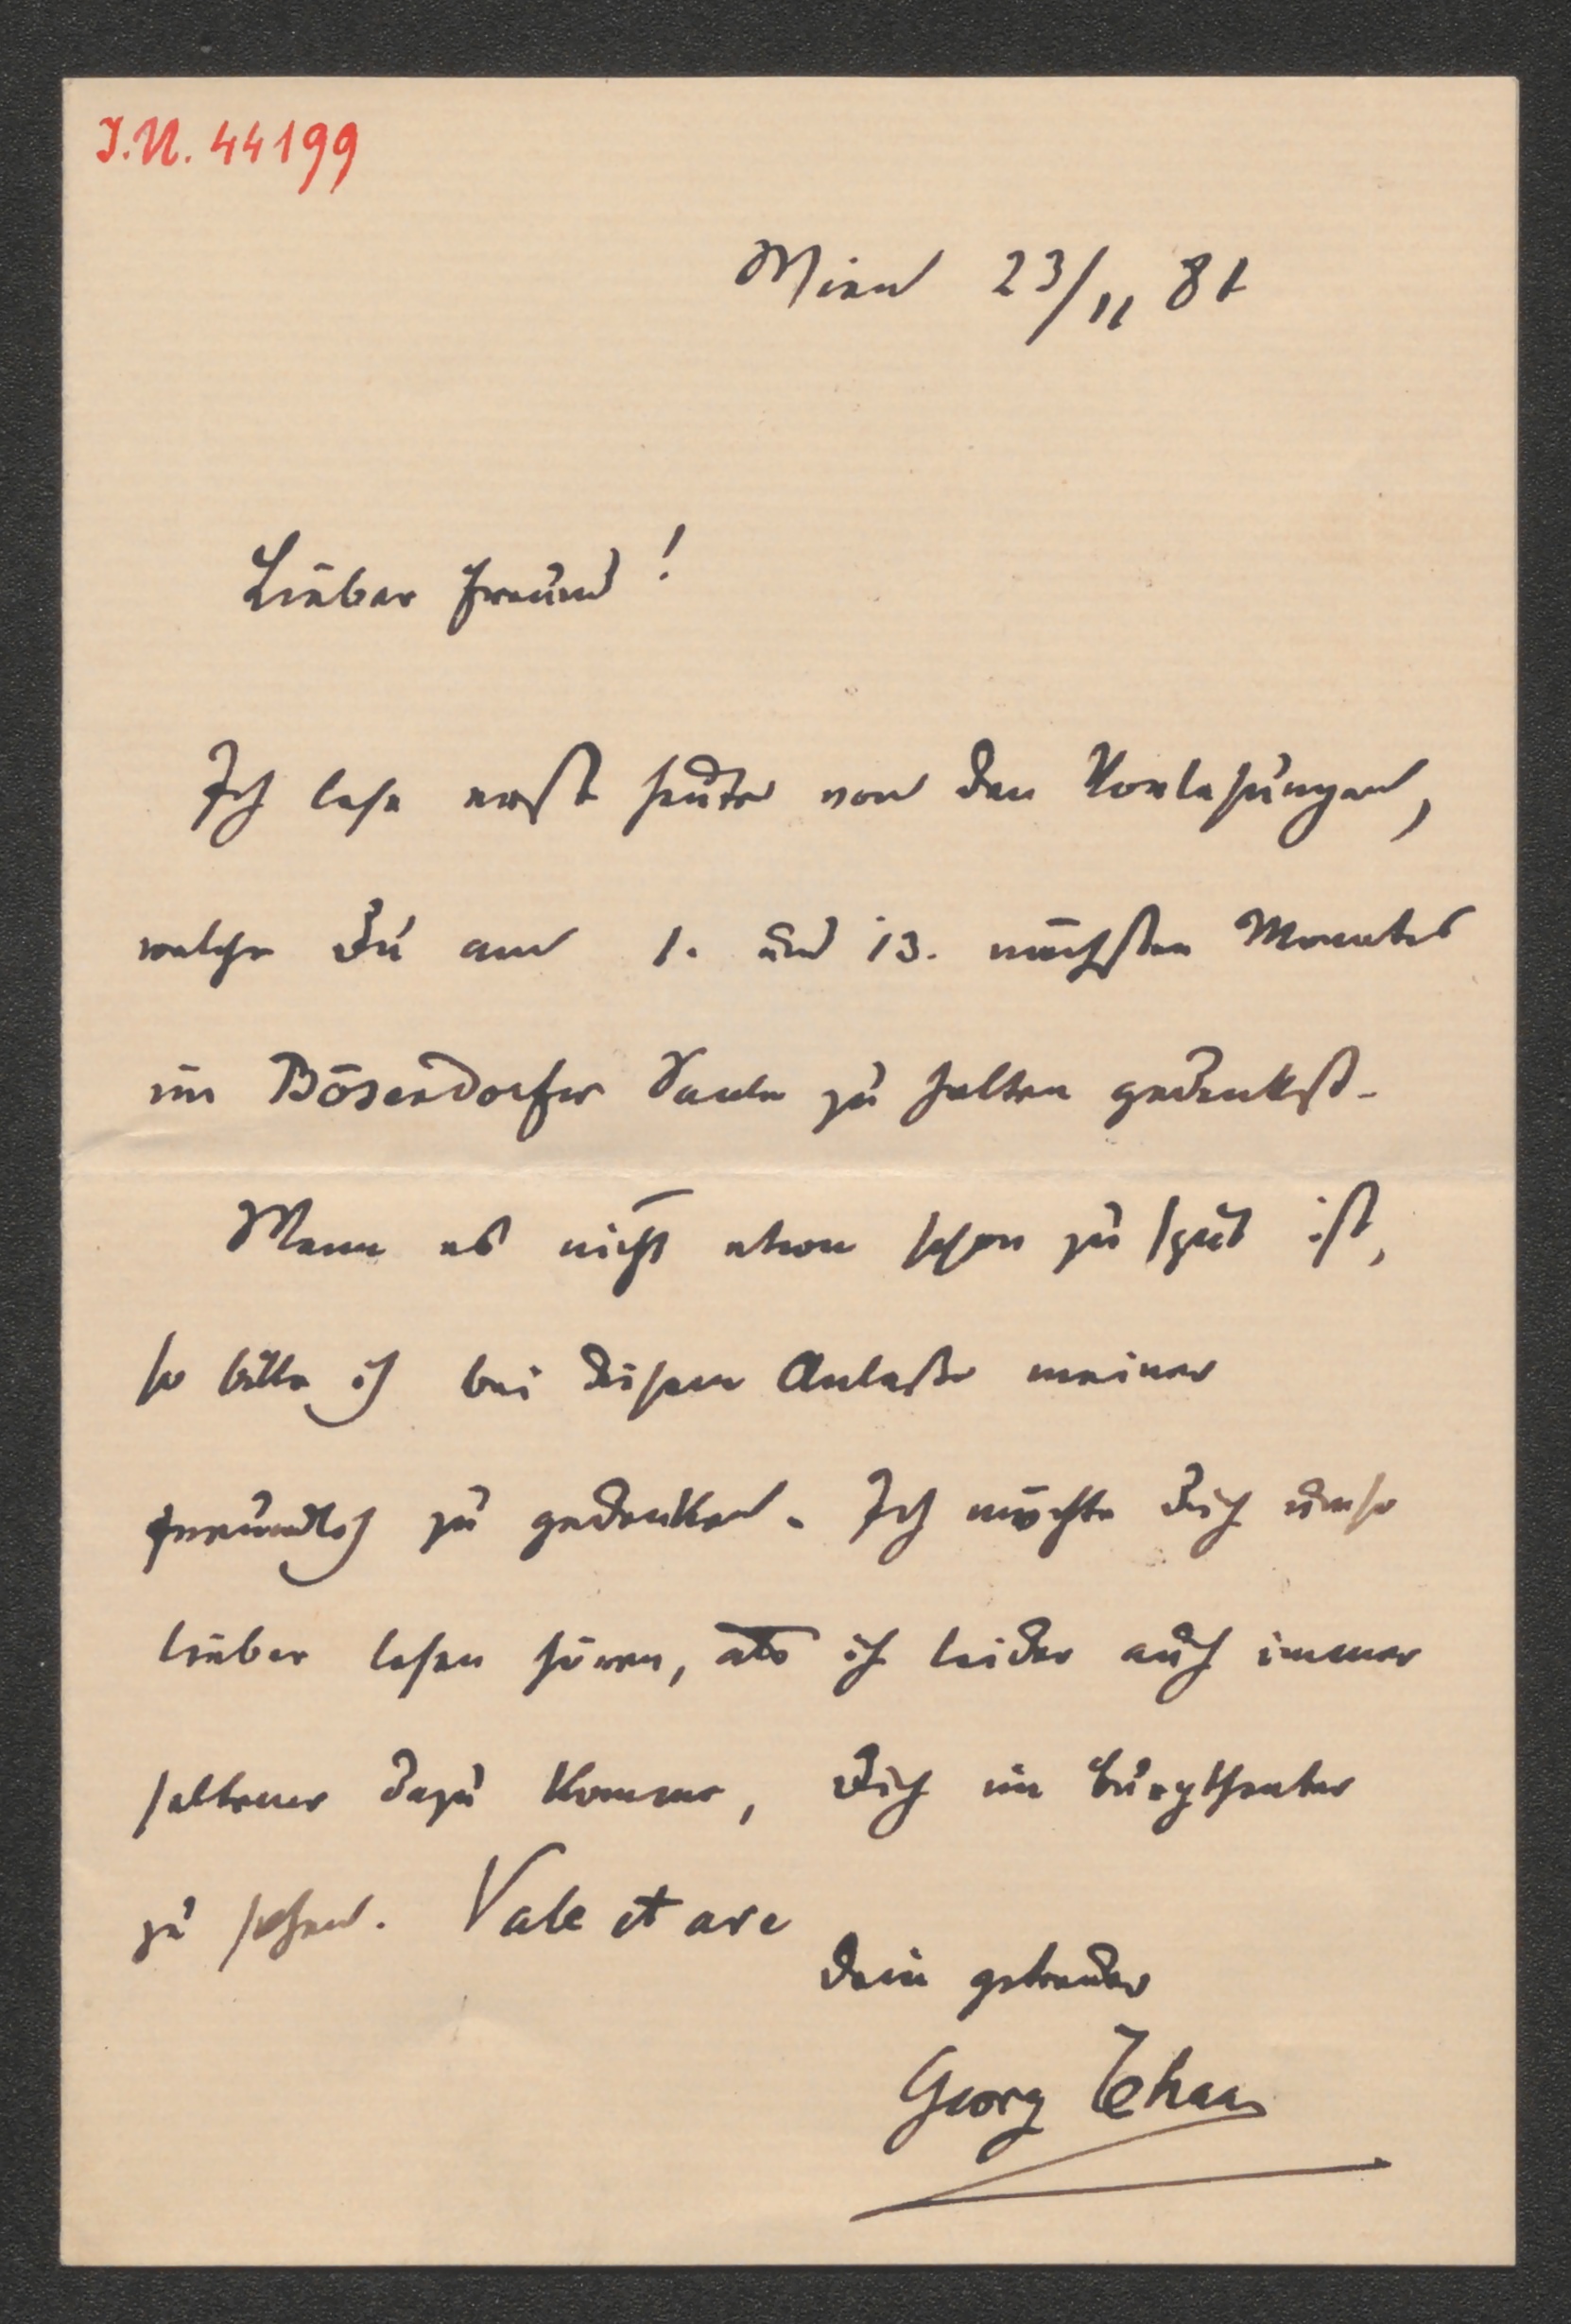 I.N. 44199
Wien 23/11 81
Lieber Freund!
Ich lese erst heute von den Vorlesungen,
welche Du am 1. und 13. nächsten Monates
im Bösendorfer Saale zu halten gedenkst.
Wenn es nicht etwa schon zu spät ist,
so bitte ich bei diesem Anlaße meiner
freundlich zu gedenken. Ich möchte Dich umso
lieber lesen hören, als ich leider auch immer
seltener dazu komme, Dich im Burgtheater
zu sehen. Vale et ave
Dein getreuer
Georg